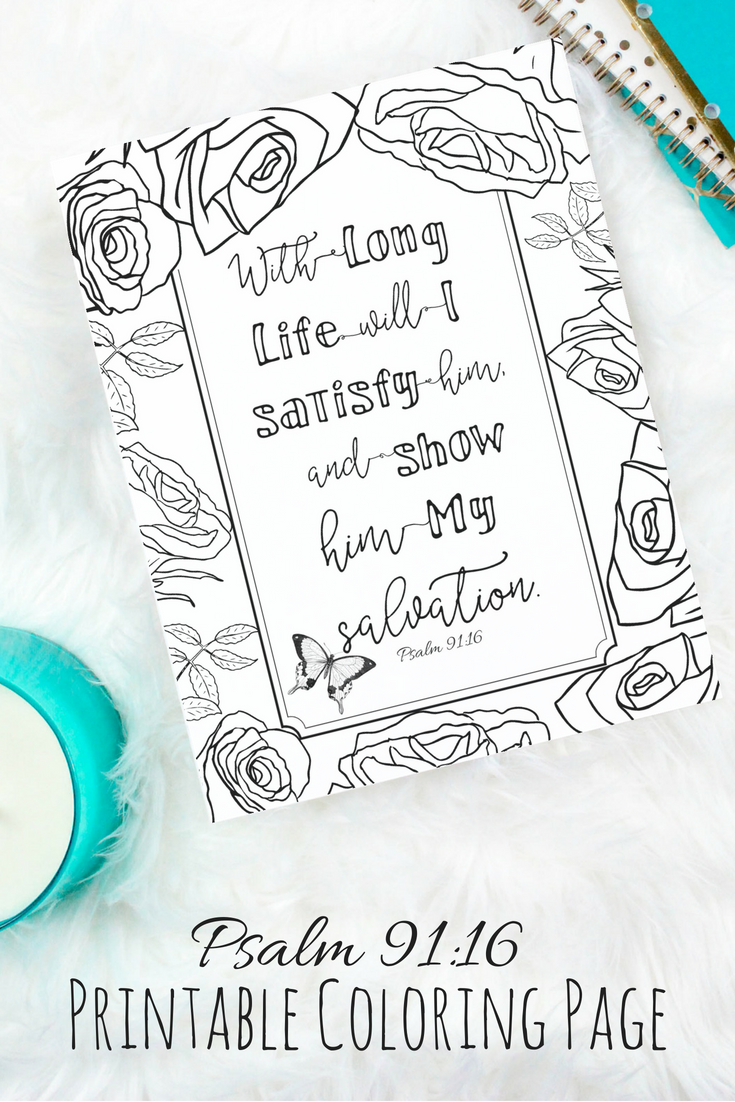 With Long
Life will I
satisfy him,
and show
him My
salvation.
Psalm 91:16
Psalm 91:16
Printable Coloring Page